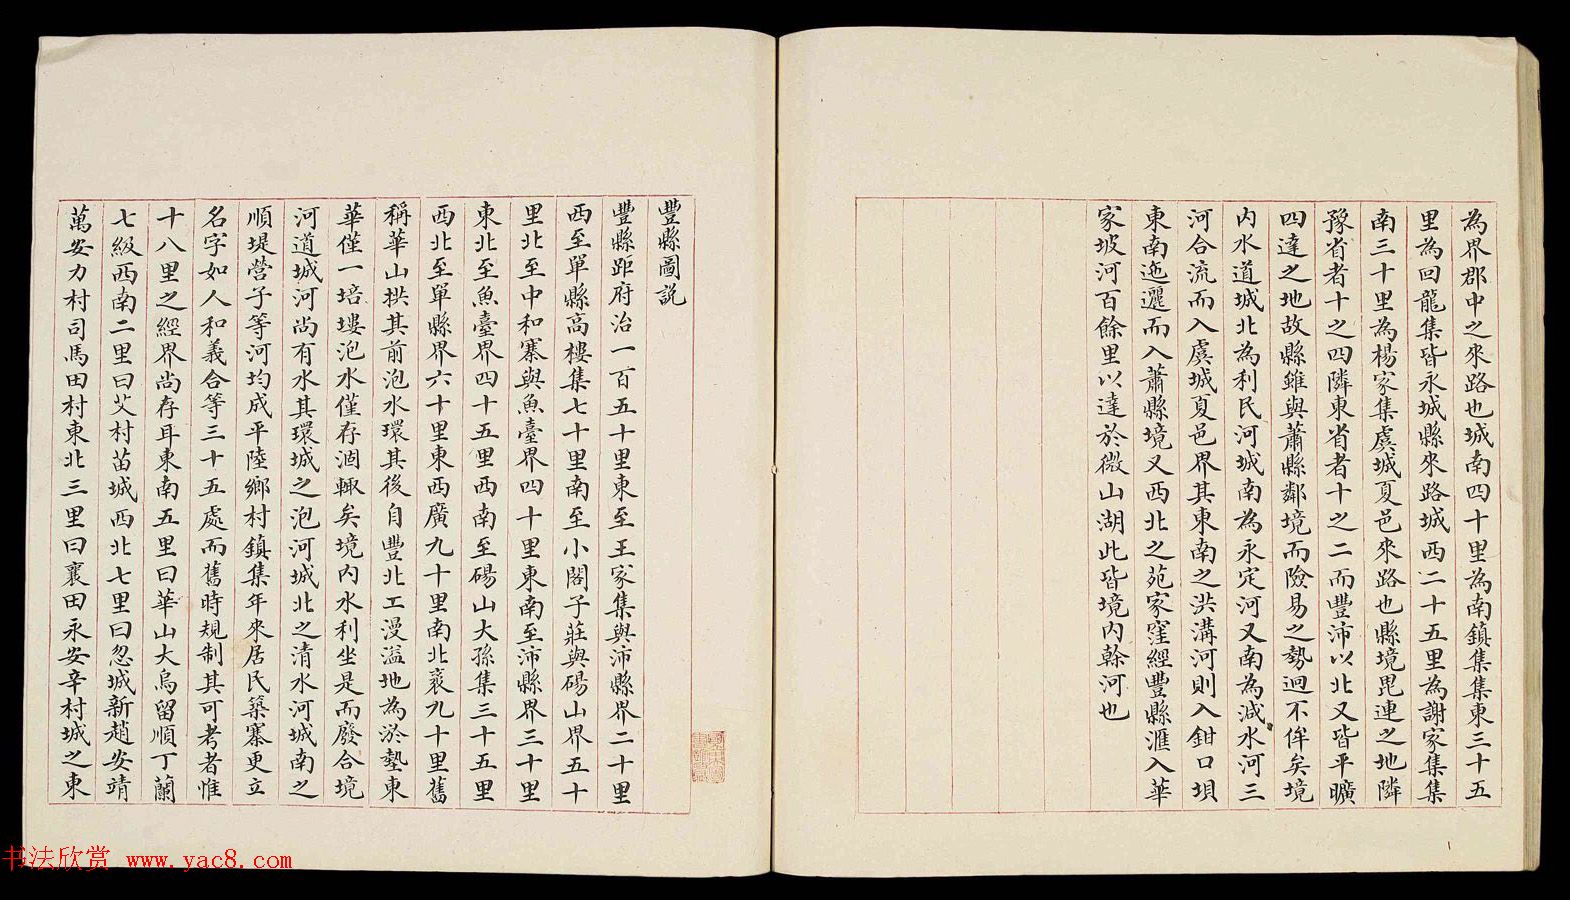 為界郡中之來路也城南四十里為南鎮集集東三十五
里為回龍集皆永城縣來路城西二十五里為謝家集集
南三十里為楊家集虞城夏邑來路也縣境毘連之地隣
豫省者十之四隣東省者十之二而豐沛以北又皆平曠
四達之地故縣雖與蕭縣鄰境而險易之勢迥不侔矣境
内水道城北為利民河城南為永定河又南為減水河三
河合流而入虞城夏邑界其東南之洪溝河則入鉗口垻
東南迤邐而入蕭縣境又西北之苑家窪經豐縣滙入華
家坡河百餘里以達於微山湖此皆境内幹河也
豐縣圖説
豐縣距府治一百五十里東至王家集與沛縣界二十里
西至單縣高樓集七十里南至小閻子莊與碭山界五十
里北至中和寨與魚臺界四十里東南至沛縣界三十里
東北至魚臺界四十五里西南至碭山大孫集三十五里
西北至單縣界六十里東西廣九十里南北袤九十里舊
稱華山拱其前泡水環其後自豐北工漫溢地為淤墊東
華僅一培塿泡水僅存涸轍矣境内水利坐是而廢合境
河道城河尚有水其環城之泡河城北之清水河城南之
順堤營子等河均成平陸鄉村鎮集年來居民築寨更立
名字如人和義合等三十五處而舊時規制其可考者惟
十八里之經界尚存耳東南五里曰華山大烏留順丁蘭
七級西南二里曰艾村苗城西北七里曰忽城新趙安靖
萬安力村司馬田村東北三里曰襄田永安辛村城之東
书法欣赏 www.yac8.com